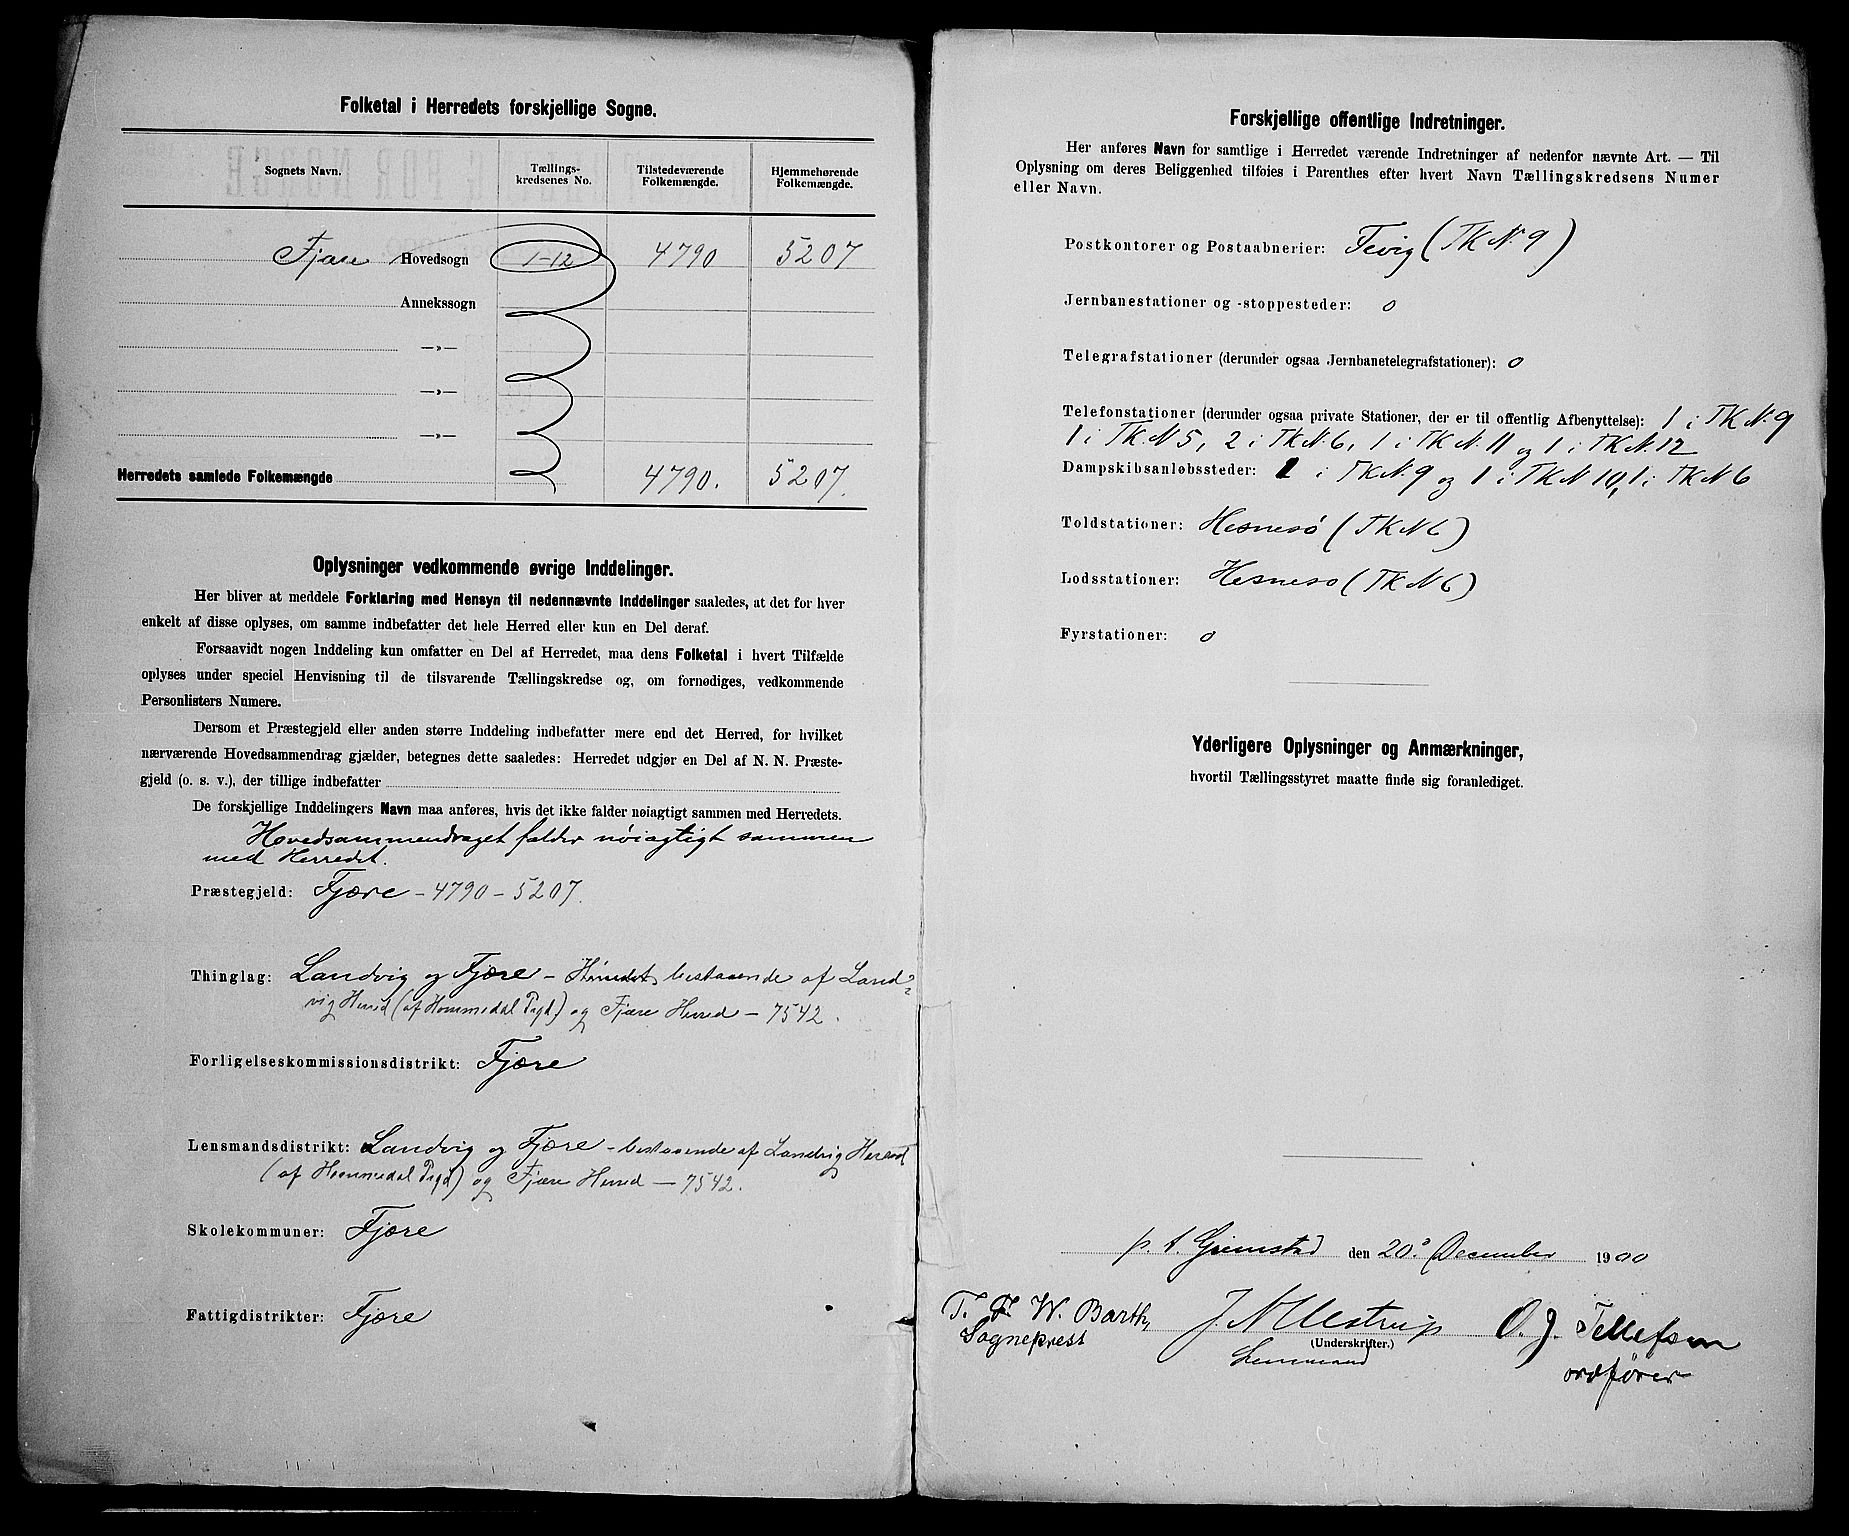 Folketal i Herredets forskjellige Sogne.
Sognets Navn. Tællings-kredsenes No. Tilstedeværende Folkemængde. Hjemmehørende Folkemængde.
Fjære Hovedsogn 1-12 4790 5207
Annekssogn
—»—
—»—
—»—
Herredets samlede Folkemængde 4790. 5207.
Oplysninger vedkommende øvrige Inddelinger.
Her bliver at meddele Forklaring med Hensyn til nedennævnte Inddelinger saaledes, at det for hver
enkelt af disse oplyses, om samme indbefatter det hele Herred eller kun en Del deraf.
Forsaavidt nogen Inddeling kun omfatter en Del af Herredet, maa dens Folketal i hvert Tilfælde
oplyses under speciel Henvisning til de tilsvarende Tællingskredse og, om fornødiges, vedkommende
Personlisters Numere.
Dersom et Præstegjeld eller anden større Inddeling indbefatter mere end det Herred, for hvilket
nærværende Hovedsammendrag gjælder, betegnes dette saaledes: Herredet udgjør en Del af N. N. Præste-
gjeld (o. s. v.), der tillige indbefatter
De forskjellige Inddelingers Navn maa anføres, hvis det ikke falder nøiagtigt sammen med Herredets.
Hovedsammendraget falder nöiagtigt sammen
med Herredet.
Præstegjeld: Fjære - 4790 - 5207.
Thinglag: Landvig og Fjære - bestaaende af Land-
vig Herred (af Hommedal Pgd) og Fjære Herred - 7542.
Forligelseskommissionsdistrikt: Fjære
Lensmandsdistrikt: Landvig og Fjære - bestaaende af Landvig Herred
(af Hommedal Pgd) og Fjære Herred - 7542.
Skolekommuner: Fjære
Fattigdistrikter: Fjære
Forskjellige offentlige Indretninger.
Her anføres Navn for samtlige i Herredet værende Indretninger af nedenfor nævnte Art. — Til
Oplysning om deres Beliggenhed tilføies i Parenthes efter hvert Navn Tællingskredsens Numer
eller Navn.
Postkontorer og Postaabnerier: Fevig (TK N. 9)
Jernbanestationer og -stoppesteder: 0
Telegrafstationer (derunder ogsaa Jernbanetelegrafstationer): 0
Telefonstationer (derunder ogsaa private Stationer, der er til offentlig Afbenyttelse): 1 i TK N. 9
1 i TK. N 5, 2 i TK N. 6, 1 i TK N. 11 og 1 i TK N. 12
Dampskibsanløbssteder: 1 i TK N. 9 og 1 i TK N 10, 1 i TK N 6
Toldstationer: Hesnesö (TK N 6)
Lodsstationer: Hesneso (TK N 6)
Fyrstationer: 0
Yderligere Oplysninger og Anmærkninger,
hvortil Tællingsstyret maatte finde sig foranlediget.
p. t. Grimstad den 20. December 1900
T. F. W. Barth, J. N Ulestrup O. J. Tellefsen
Sognepræst (Underskrifter.)
Lensmand ordfører